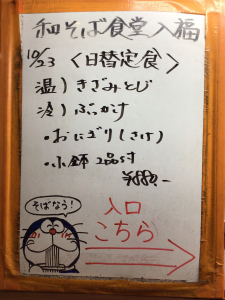 和そば食堂入福
10/23 〈日替定食〉
温) きざみとじ
冷) ぶっかけ
・おにぎり(さけ)
・小鉢 2品付
¥880-
そばなう!
入口
こちら